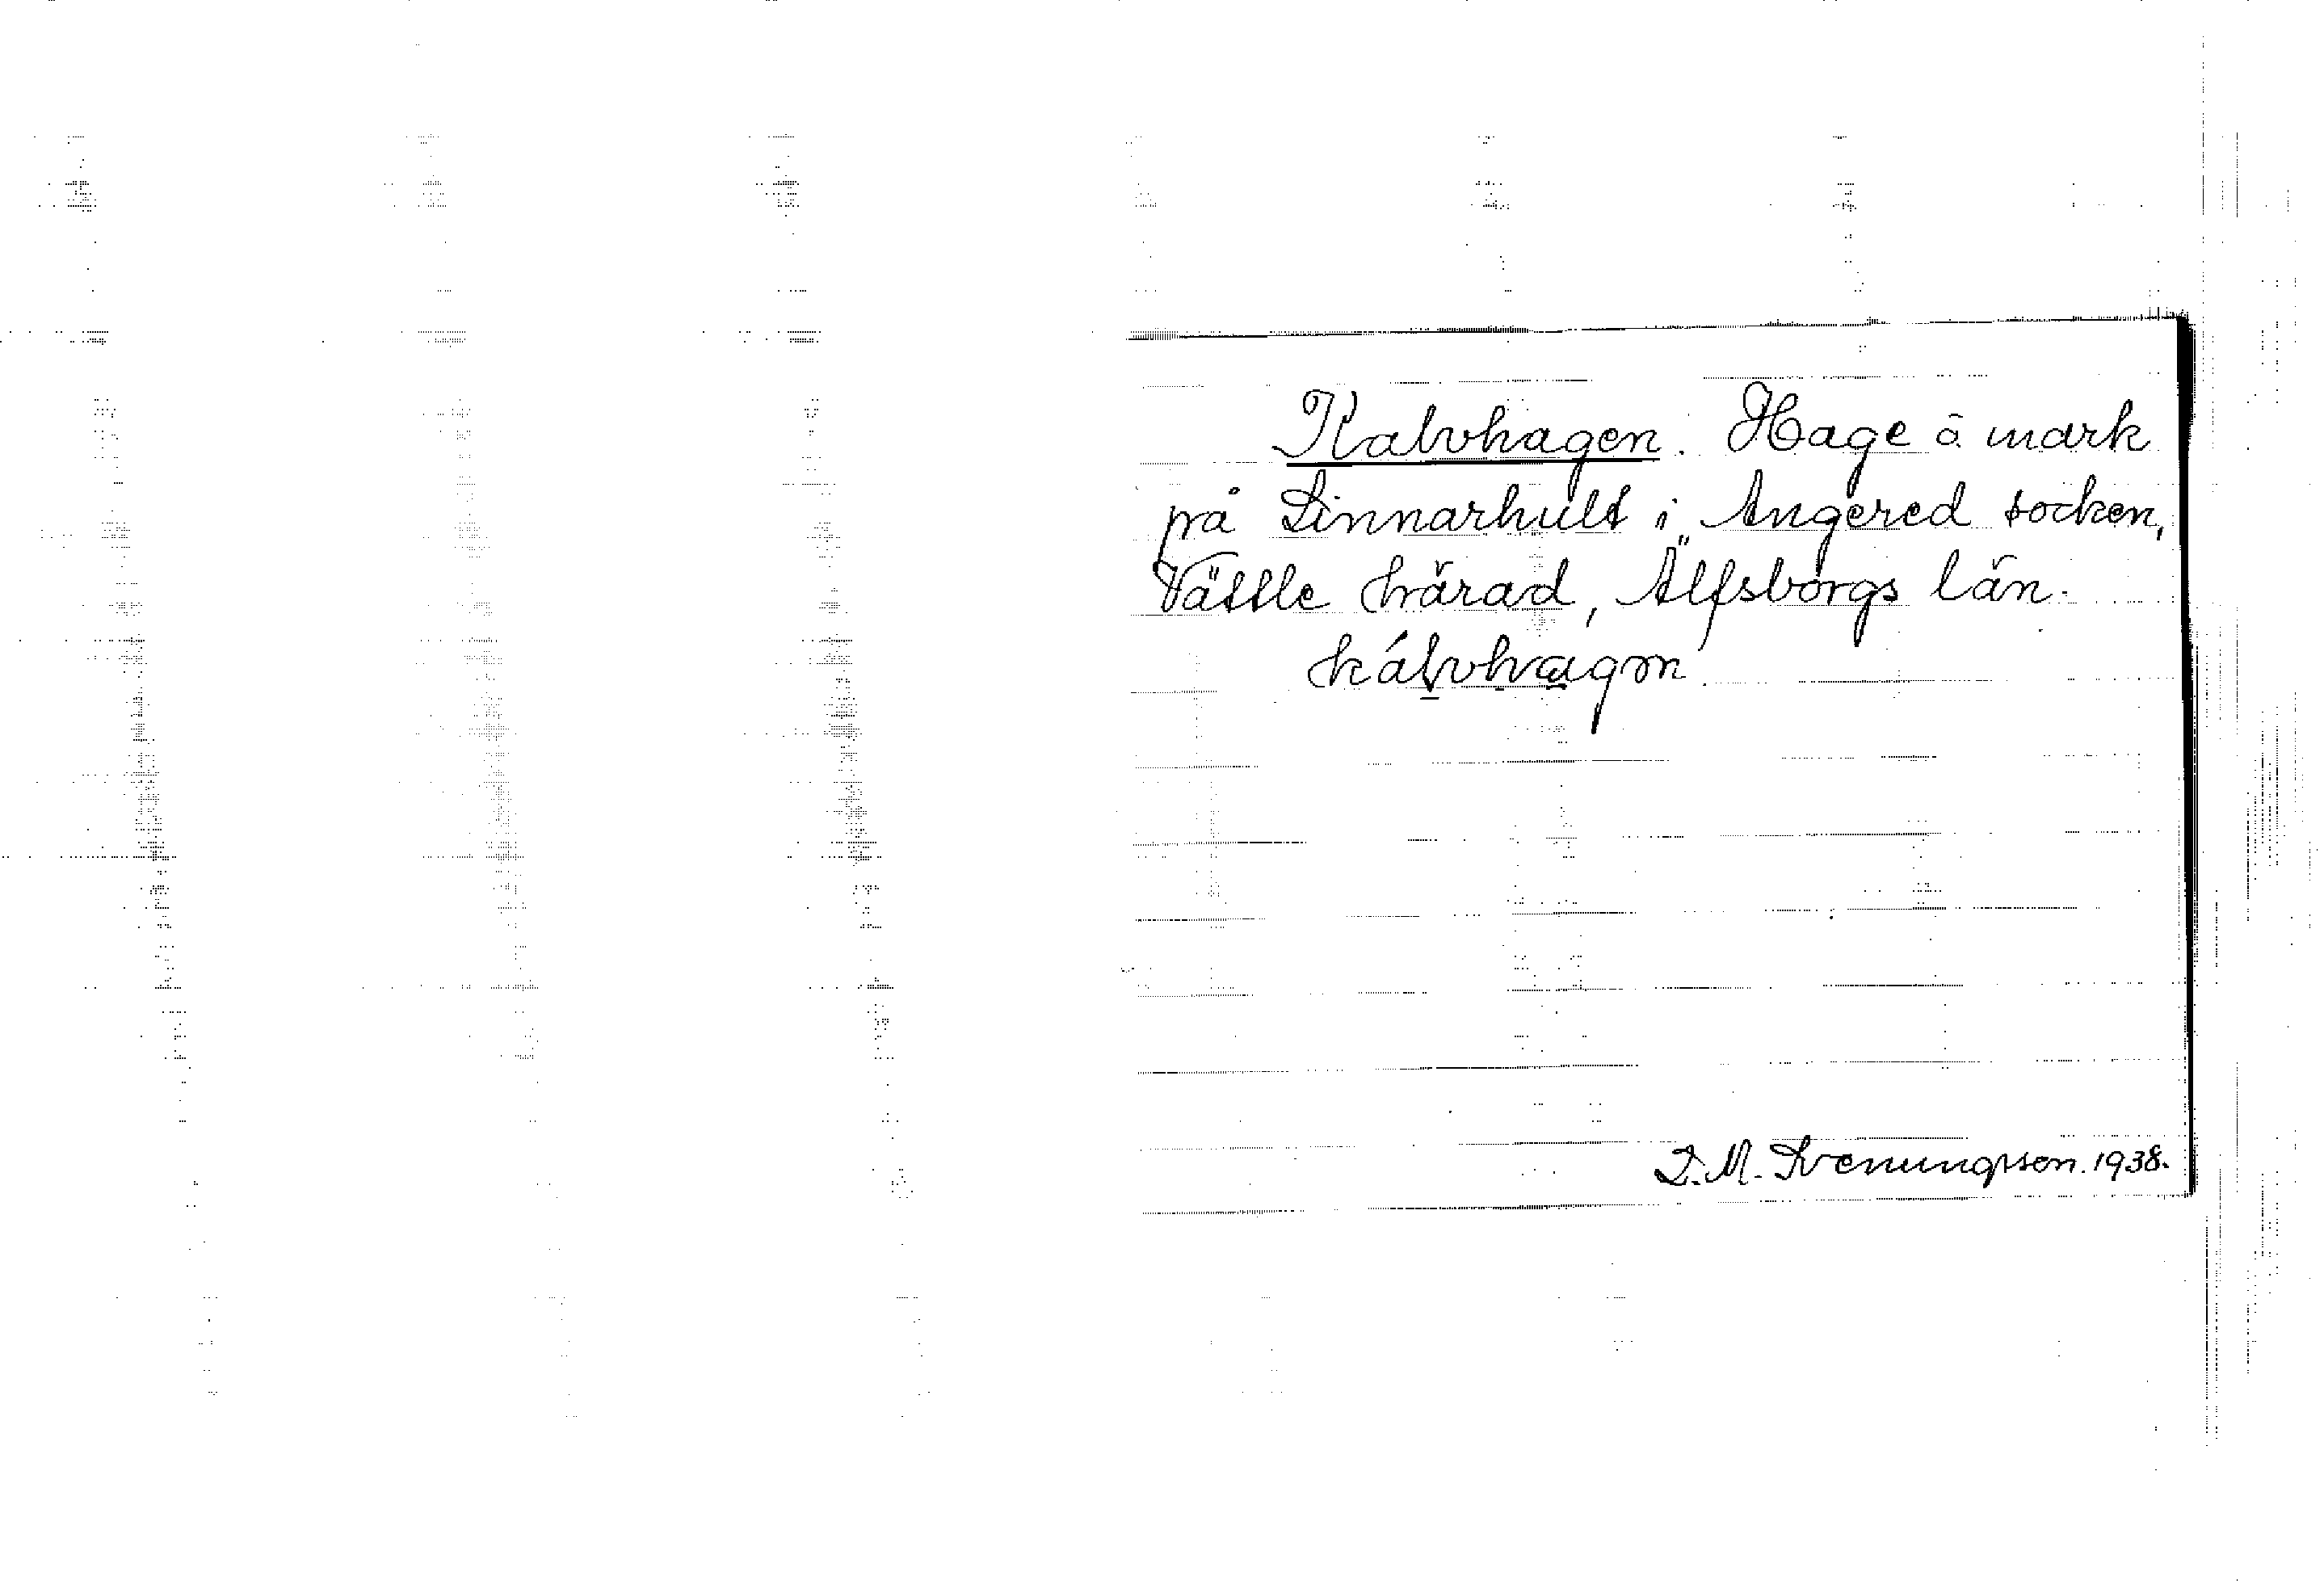 Kalvhagen. Hage å mark
på Linnarhult i Angered socken,
Vättle härad, Älfsborgs län.
kálvhagon
D. M. Svenungsson. 1938.